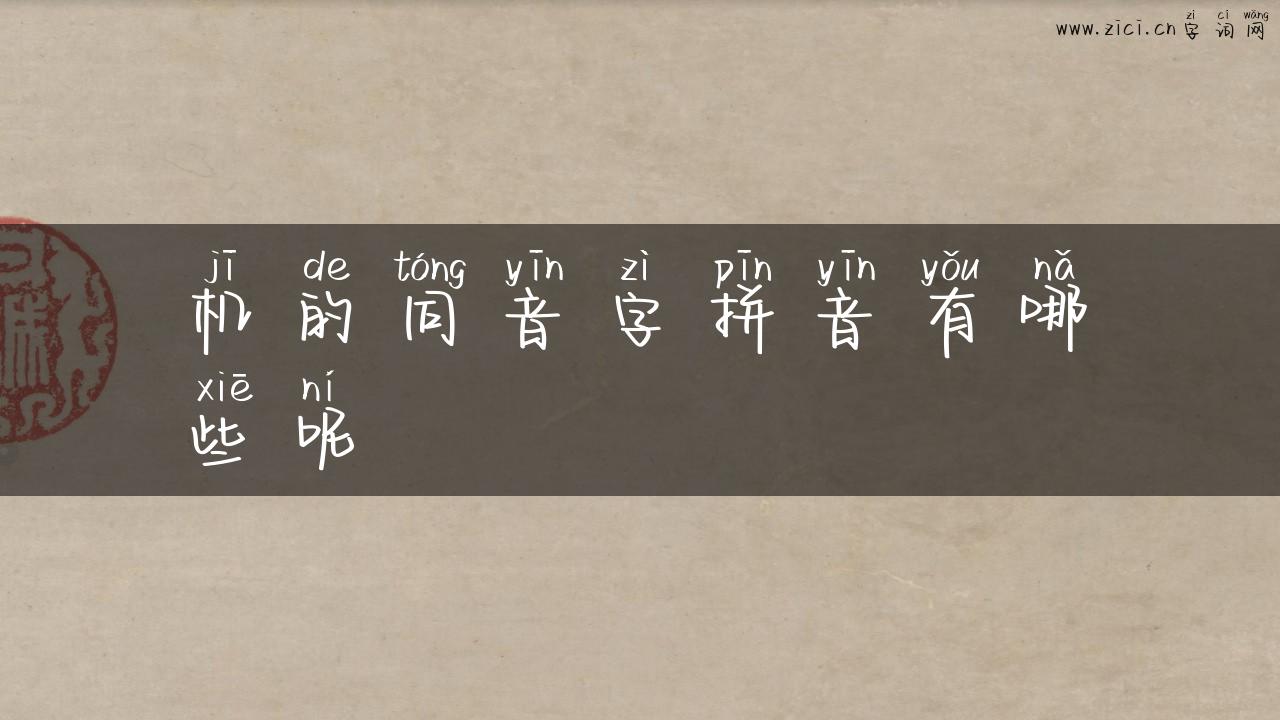 zì cí wǎng
www.zici.cn 字词网
jī de tóng yīn zì pīn yīn yǒu nǎ
机的同音字拼音有哪
xiē ní
些呢